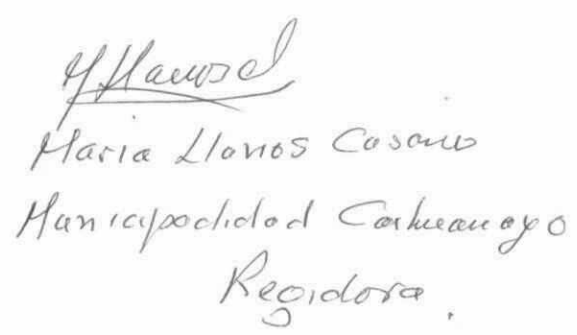 MLlanosC
Maria Llanos Casano
Municipodidod Carhuamayo
Regidora.